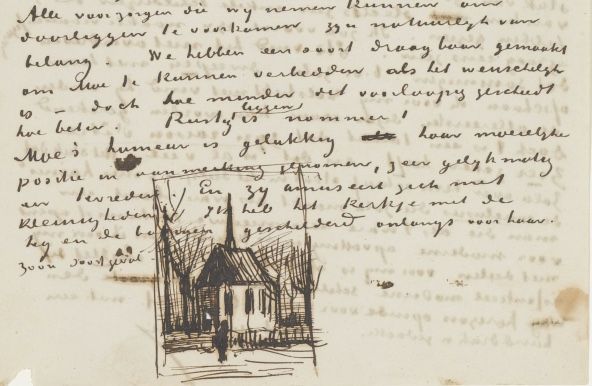 Alle voorzorgen die wij nemen kunnen om
doorleggen te voorkomen zijn natuurlijk van
belang. We hebben een soort draagbaar gemaakt
om Moe te kunnen verbedden als het wenschelijk
is – doch hoe minder dit voorloopig geschiedt
hoe beter. Rustig liggen is nommer 1
Moe's humeur is gelukkig haar moeielijke
positie in aanmerking genomen, zeer gelijkmatig
en tevreden. En zij amuseert zich met
kleinigheden. Ik heb het kerkje met de
heg en de boomen geschilderd onlangs voor haar.
zoo'n soort geval